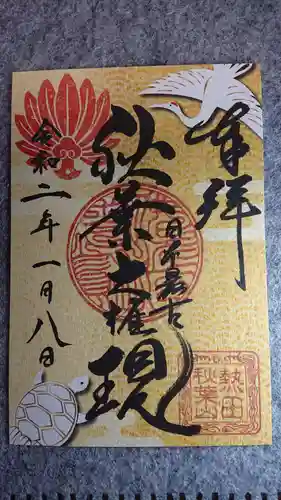 奉拝
日本最古
秋葉大権現
令和二年一月八日
熱田
秋葉山